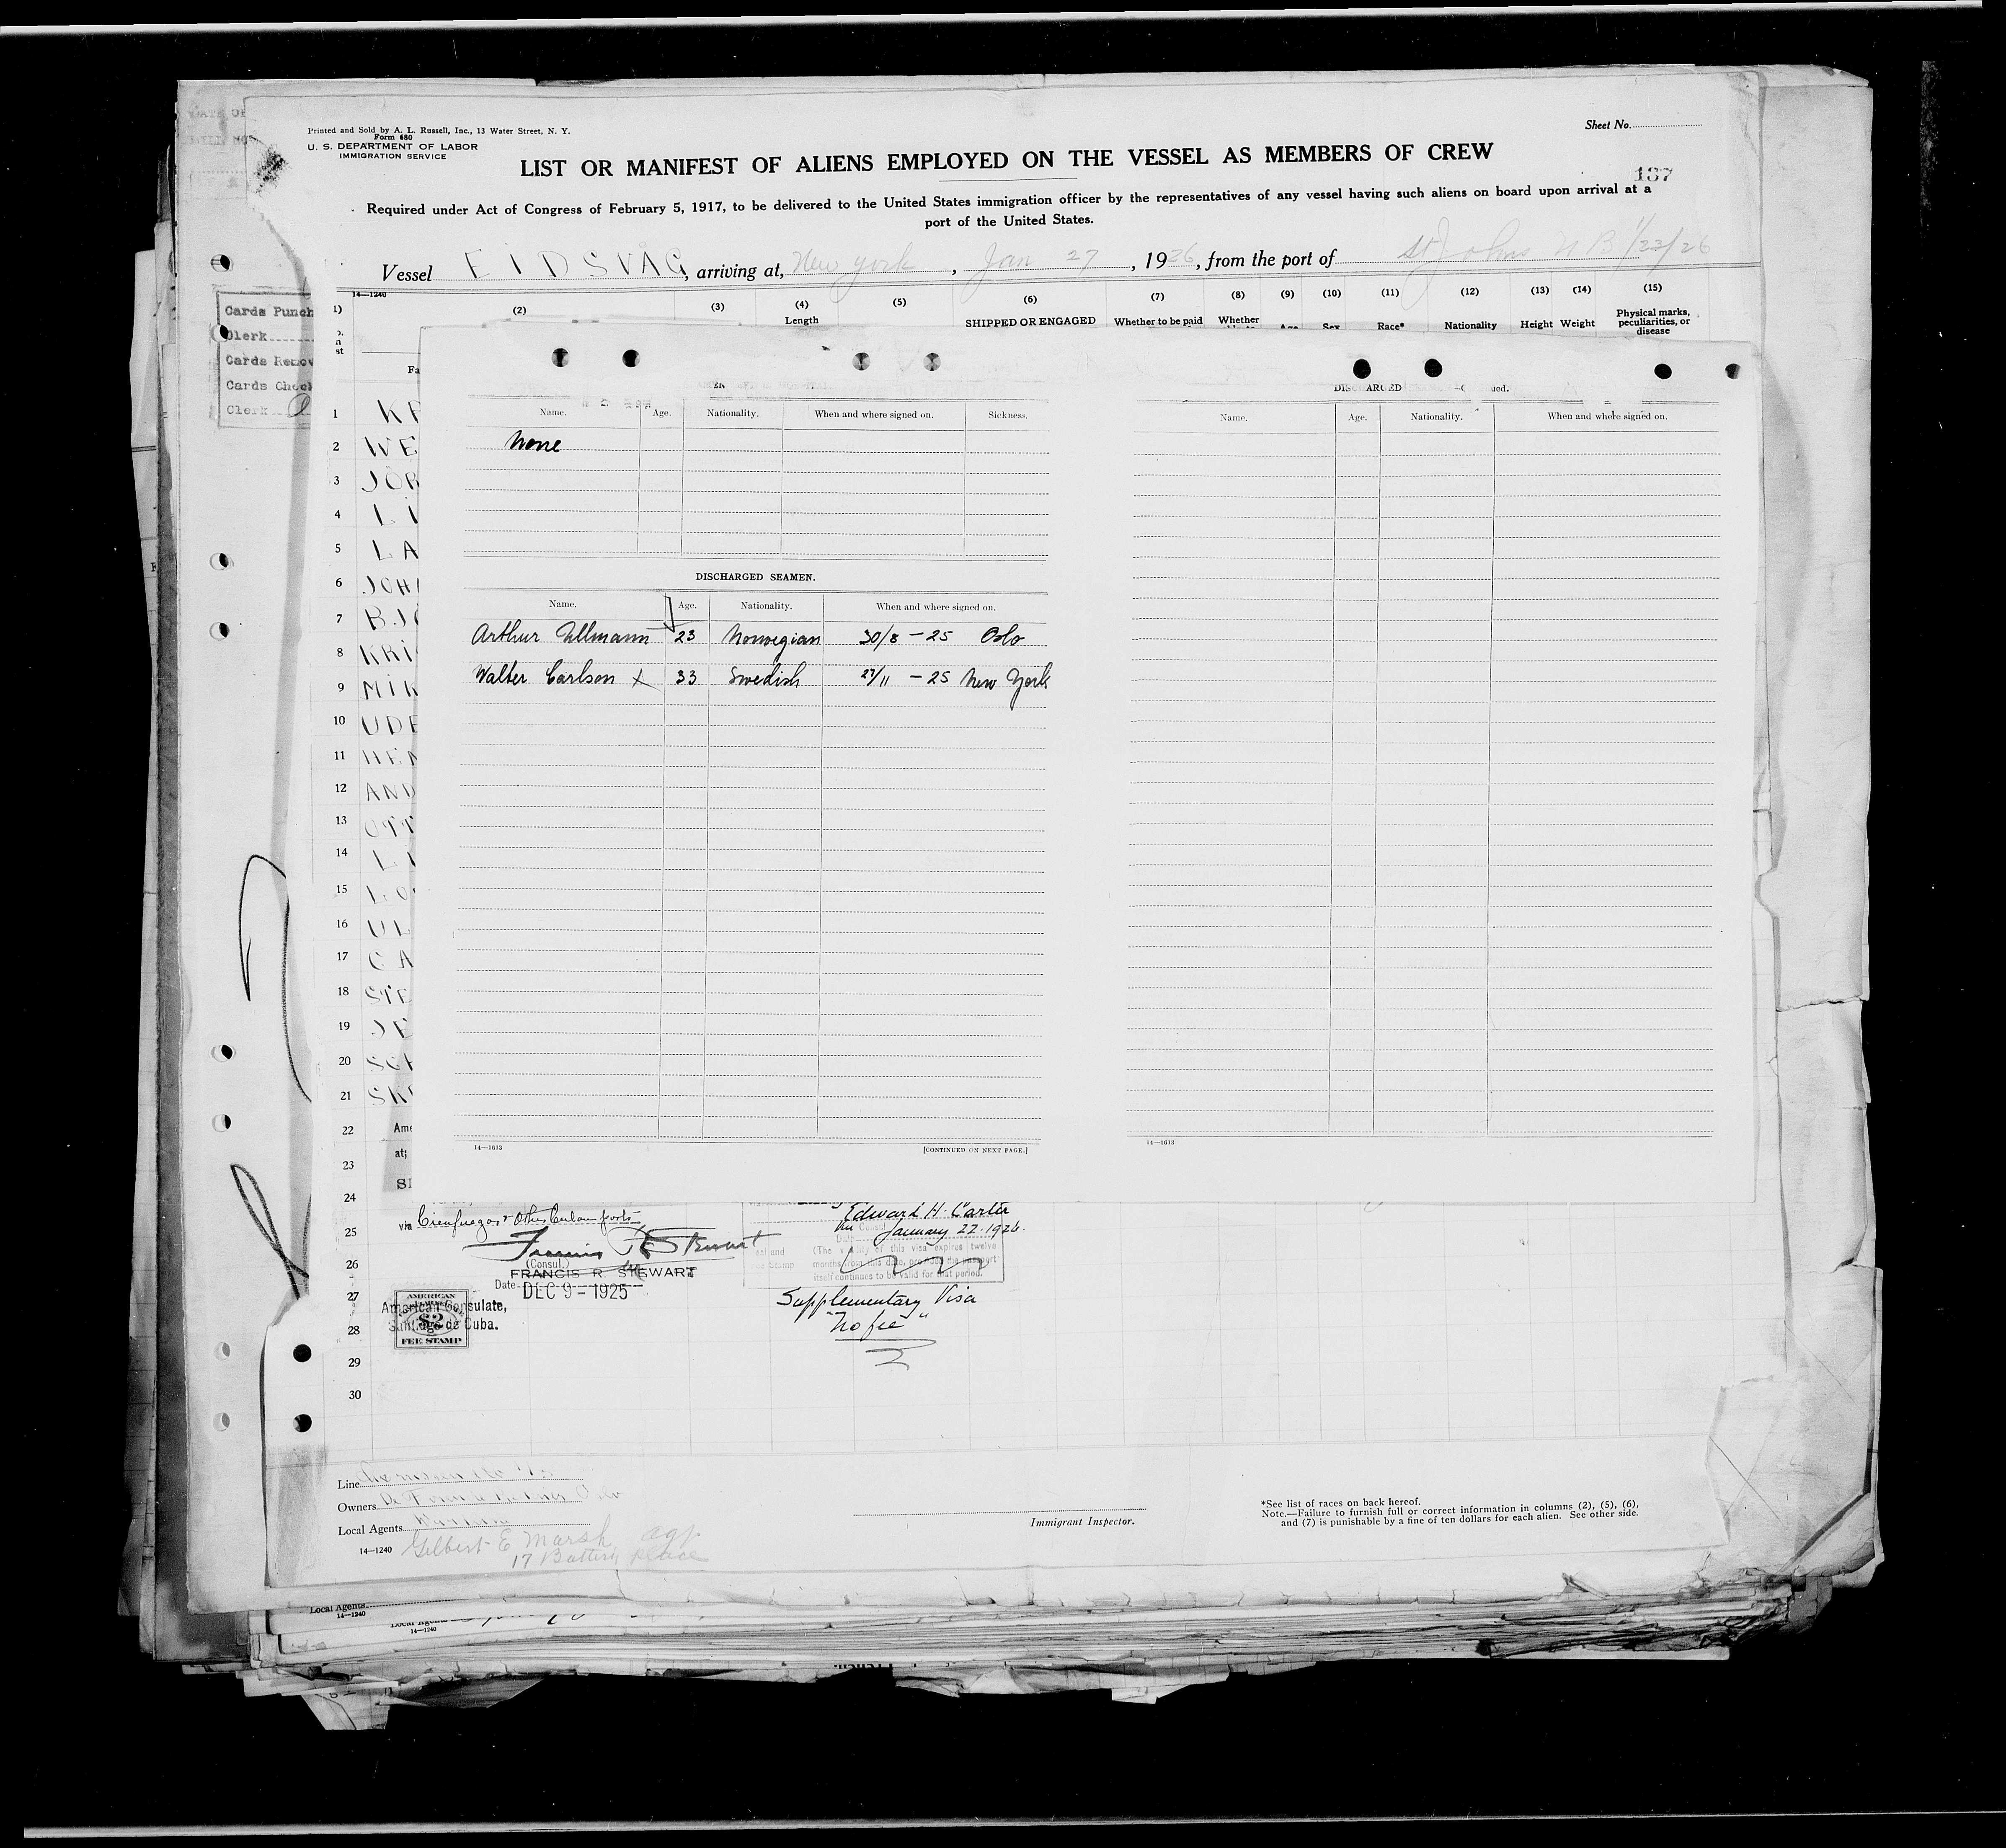 Printed and Sold by A. L. Russell, Inc., 13 Water Street, N. Y.
Form 680
U. S. DEPARTMENT OF LABOR
IMMIGRATION SERVICE
Sheet No.
LIST OR MANIFEST OF ALIENS EMPLOYED ON THE VESSEL AS MEMBERS OF CREW
137
Required under Act of Congress of February 5, 1917, to be delivered to the United States immigration officer by the representatives of any vessel having such aliens on board upon arrival at a
port of the United States.
Vessel EIDSVÅG, arriving at, New York, Jan 27, 1926, from the port of St Johns N B 1/23/26
14—1240
(2) (3) (4) (5) (6) (7) (8) (9) (10) (11) (12) (13) (14) (15)
Length SHIPPED OR ENGAGED Whether to be paid Whether Age Sex Race* Nationality Height Weight Physical marks, peculiarities, or disease
Cards Punch
Clerk
Cards Remov
Cards Check
Clerk
Name. Age. Nationality. When and where signed on. Sickness.
None
DISCHARGED SEAMEN.
Name. Age. Nationality. When and where signed on.
Arthur Ullmann 23 Norwegian 30/8 – 25 Oslo
Walter Carlson X 33 Swedish 27/11 – 25 New York
14—1613
[CONTINUED ON NEXT PAGE.]
Name. Age. Nationality. When and where signed on.
14—1613
1 KR
2 WE
3 JÖR
4 LI
5 LA
6 JOH
7 BJ
8 KRI
9 MIK
10 UDE
11 HEN
12 AND
13 OTT
14 L
15 LO
16 UL
17 CA
18 STE
19 JE
20 SCH
21 SK
22 Ame
23 at;
24 SI
25 via Cienfuegos & Other Cuban ports
26
27
28
29
30
Francis R Stewart
(Consul.)
FRANCIS R. STEWART
Date DEC 9 – 1925
American Consulate,
Santiago de Cuba.
AMERICAN
$2
FEE STAMP
Edward H. Carter
January 22. 1926.
(The validity of this visa expires twelve
months from this date, provided the passport
itself continues to be valid for that period.
Supplementary Visa
"No fee"
Line
Owners
Local Agents
14—1240
Gilbert E Marsh agt
17 Battery place
Immigrant Inspector.
*See list of races on back hereof.
Note.—Failure to furnish full or correct information in columns (2), (5), (6),
and (7) is punishable by a fine of ten dollars for each alien. See other side.
Local Agents
14—1240
14—1240